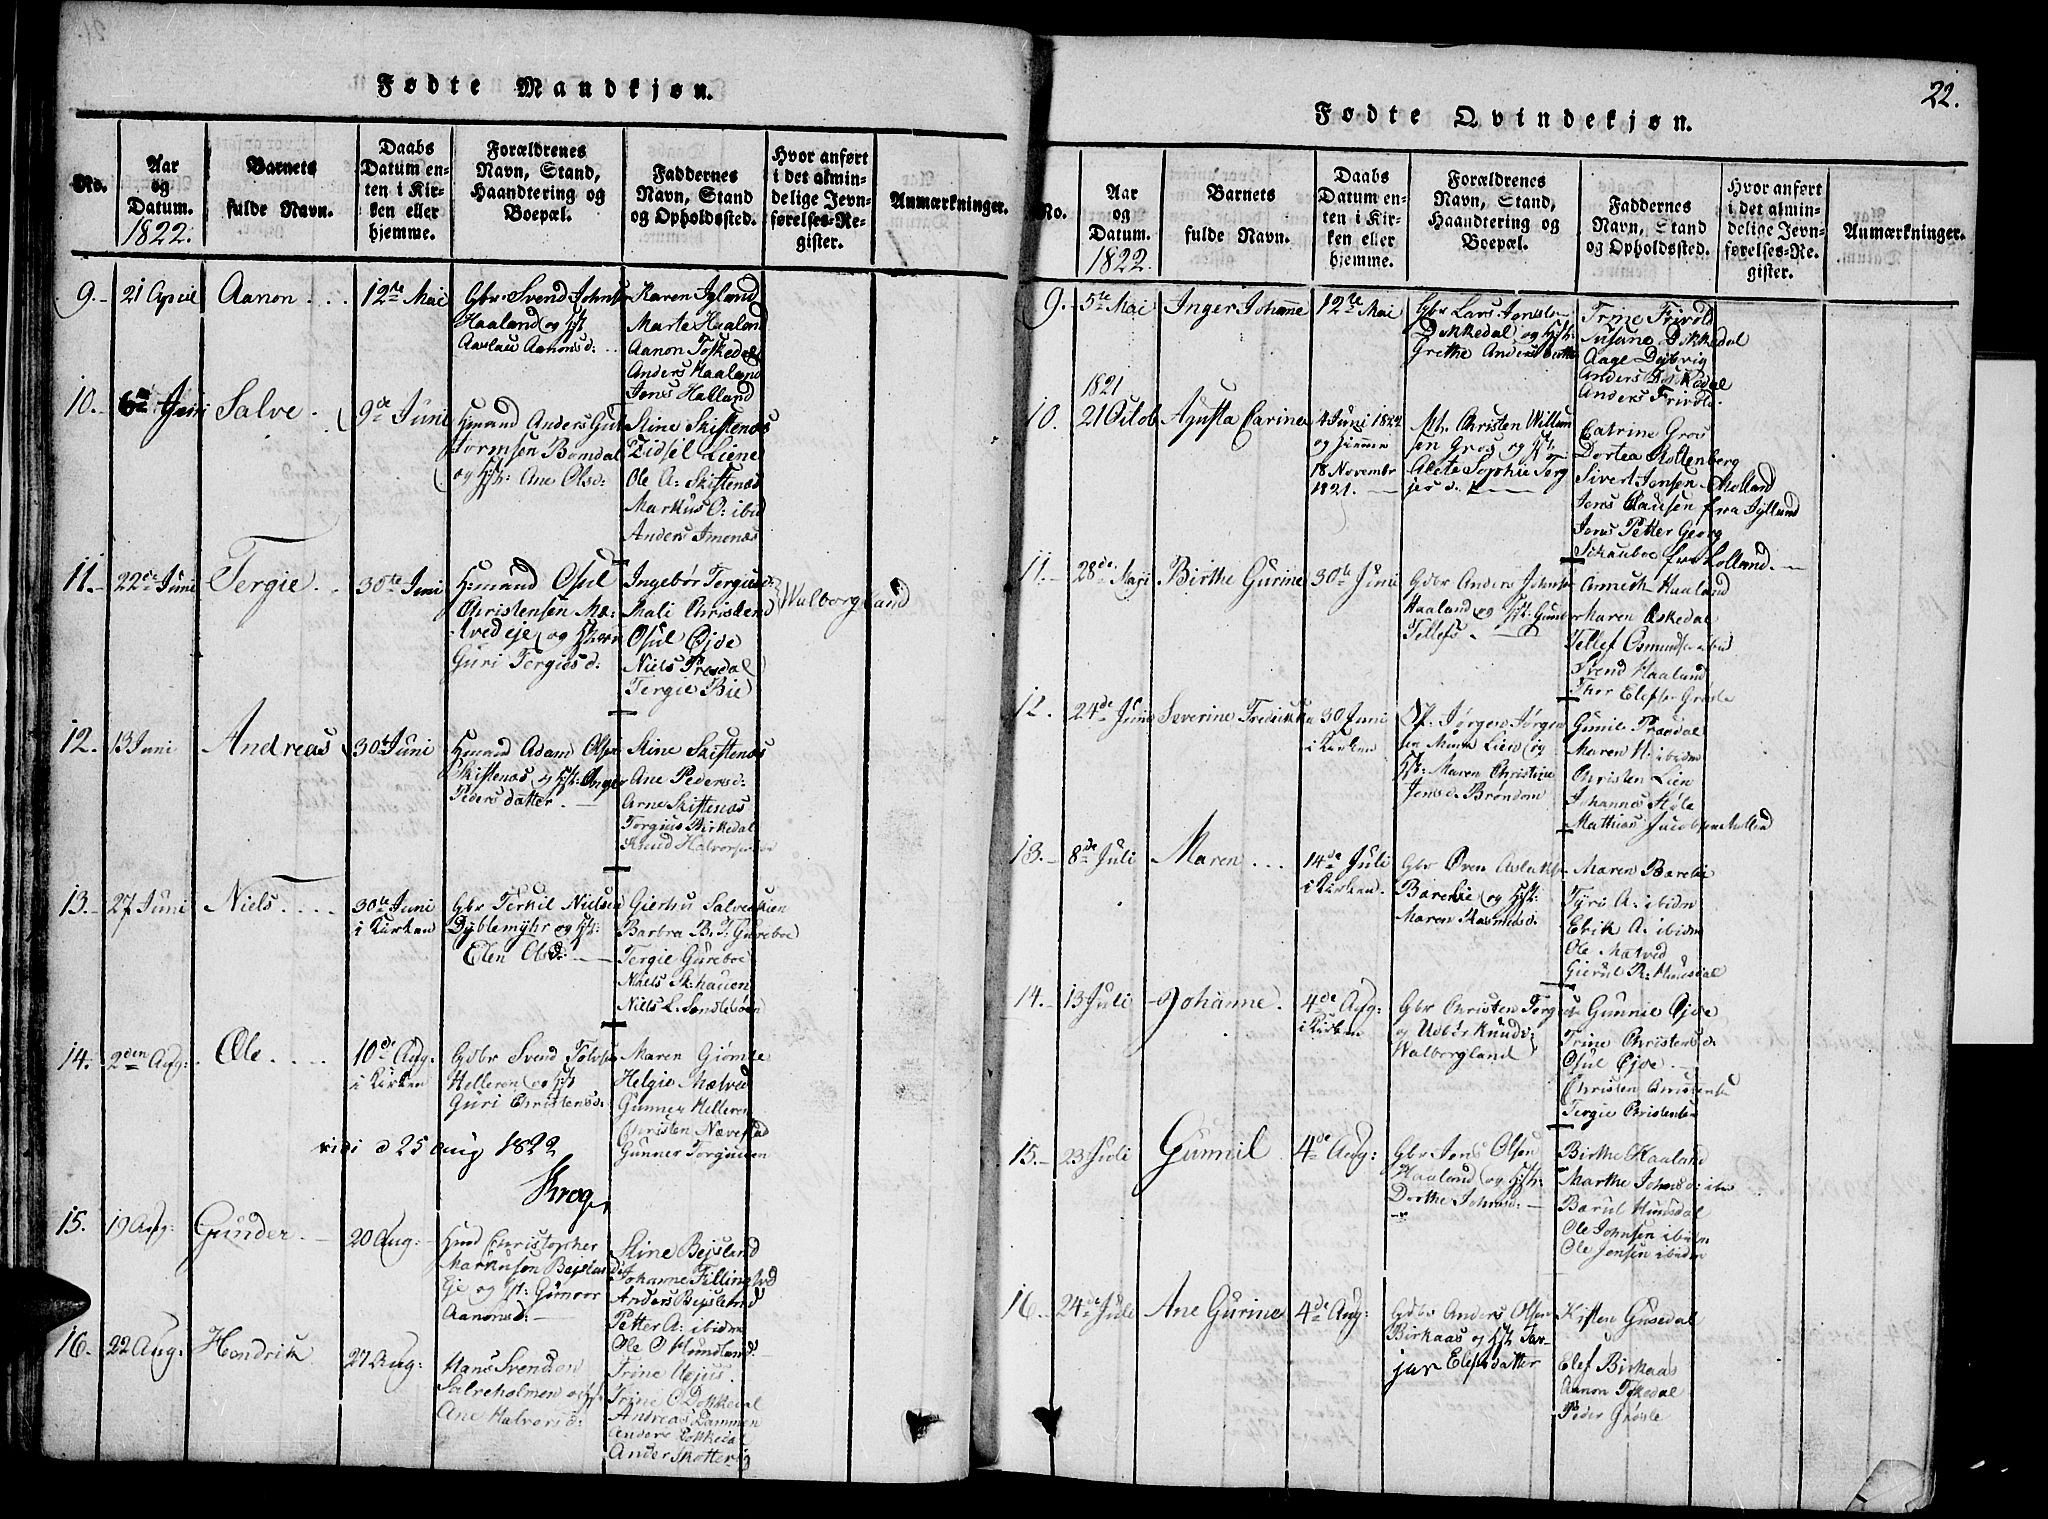 Fødte Mandkjøn.
No.
Aar og Datum. 1822.
Barnets fulde Navn.
Daabs Datum enten i Kirken eller hjemme.
Forældrenes Navn, Stand, Haandtering og Boepæl.
Faddernes Navn, Stand og Opholdssted.
Hvor anført i det almindelige Jevnførelses-Register.
Anmærkninger.
9. 21 April Aanon 12te Mai
Gbr Svend Johns
Haaland og
Aaslau Aanonsd:
Karen Igland
Marte Haaland
Aanon Toskedal
Anders Haaland
Jens Halland
10. Juni Salve 9de Juni
Hmand Anders Gut
tormsen Bomdal
og Hst: Ane Olsd:
Stine Skiftenæs
Zidsel Liene
Ole A: Skiftenæs
Markus O: ibid
Anders Imenæs
11. 22de Juni Tergie 30te Juni
Hmand Osul
Christensen Mæ-
tved eje og
Guri Tergiesd:
Ingebor Tergiesd:
Mali Christens
Osul Ejde
Niels Presdal
Tergie Bie
Walborgland
12. 13 Juni Andreas 30te Juni
Hmand Adam Olsen
Skiftenæs og Hst: Inger
Pedersdatter
Stine Skiftenæs
Ane Pedersd:
Arne Skiftenæs
Torgius Birkedal
Knud Halvorsen
13. 27 Juni Niels 30te Juni
i Kirken
Gbr Terkil Nielsen
Dyblemyhr og Hst:
Elen Olsd:
Barbra B. T. Gureboe
Tergie Gureboe
Niels Skhauen
Niels L.
14. 2den Aug: Ole 10de Aug.
i Kirken
Gdbr Svend
Helleren og Hst
Guri Christensd:
Maren
Helgie Mætved
Gunner Helleren
Christen
Gunner
vidi d 25 Aug 1822
Krog
15. 19 Aug: Gunder 20 Aug:
Hmd Christopher
Markusen Bejsland
Eje og Hst: Gunvor
Aanonsd:
Stine Bejsland
Johanne
Anders Bejsland
Petter A: ibidm
Ole O Hundland
16. 22 Aug: Hendrik 27 Aug:
Hans Svendsen
og Hst
Ane Halvorsd:
Trine
Trine O Dokkedal
Andreas Dammen
Anders Dokkedal
Anders
22.
Fødte Qvindekjøn.
No.
Aar og Datum. 1822.
Barnets fulde Navn.
Daabs Datum enten i Kirken eller hjemme.
Forældrenes Navn, Stand, Haandtering og Boepæl.
Faddernes Navn, Stand og Opholdssted.
Hvor anført i det almindelige Jevnførelses-Register.
Anmærkninger.
9. 5te Mai Inger Johanne 12te Mai
Gbr Lars Jensen
Dokkedal og Hst:
Grethe Andersdatter
Trine Frivold
Susane Dokkedal
Aage Dybvig
Anders Dokkedal
Anders Frivold.
1821
10. 21 Octob Agusta Carine 4 Juni 1822
og hjemme
18 Novembr
1821.
Christen Willum
sen Gros og Hst
Alete Sophie
Catrine Gros
Dortea Moltenberg
Sivert Jensen Molland
Jens Clausen fra Jylland
Jens Petter Georg
Schauboe fra Lolland.
11. 28de Maji Birthe Gurine 30te Juni
Gdbr Anders Johnsen
Haaland og Hst: Gunder
Tellefs
Annich Haaland
Maren Oskedal
Tellef Osmundsen
Svend Haaland
Thor Elefsen
12. 24de Juni Severine Fredrikke 30 Juni
i Kirken
Jørgen Jørgen
sen Lien og
Hst: Maren Christine
Jensd: Brøndom
Gunil Præsdal
Maren N: ibidm
Christen Lien
Johannes Støle
Mathias Jacobsen Molland
13. 8de Juli Maren 14de Juli
i Kirken.
Gbr Øven Aslaks
Barelie og Hst:
Maren Rasmusd:
Maren Barelie
Tyri A: ibidm
Erik A. ibidm
Ole Mætved
Gierul R: Hunsdal
14. 13 Juli Johanne. 4de Aug:
i Kirken
Gbr Christen Tergies
og Knuds:
Walborgland
Gunnie Ejde
Trine Christensd:
Osul Ejde
Christen Christens
Tergie Christensen
15. 23 Juli Gunnil 4de Aug:
Gbr Jens Olsen
Haaland og Hst:
Dorthe Johnsd:
Birthe Haaland
Marthe Johnsd: ibm
Barul Hunsdal
Ole Johnsen ibidm
Ole Jensen ibidm
16. 24de Juli Ane Gurine 4de Aug:
Gdbr Anders Olsen
Birkaas og Hst Tar-
jer Elefsdatter
Kisten Gusedal
Elef Birkaas
Aanon Toskedal
Peder Grøsle